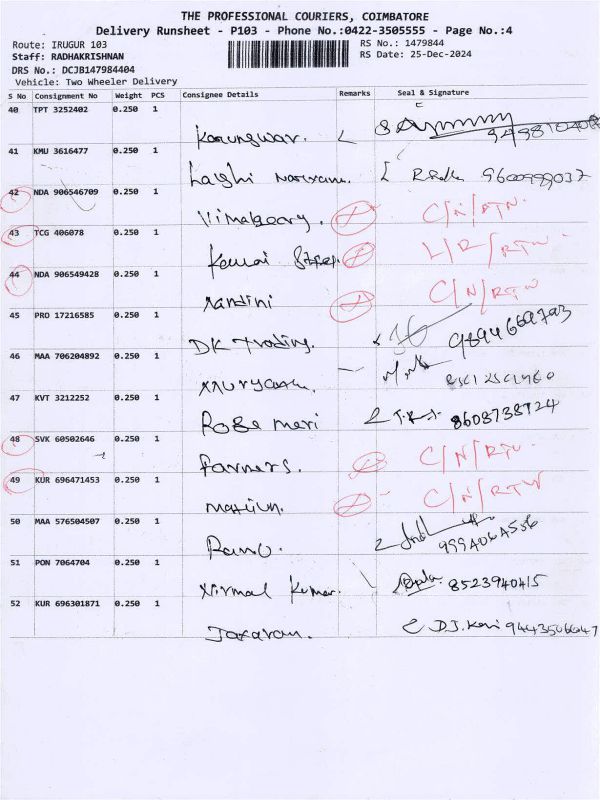 THE PROFESSIONAL COURIERS, COIMBATORE
Delivery Runsheet - P103 - Phone No.:0422-3505555 - Page No.:4
Route: IRUGUR 103
RS No.: 1479844
Staff: RADHAKRISHNAN
RS Date: 25-Dec-2024
DRS No.: DCJB147984404
Vehicle: Two Wheeler Delivery
S No Consignment No Weight PCS Consignee Details Remarks Seal & Signature
40 TPT 3252402 0.250 1
41 KMU 3616477 0.250 1
R. Radha 9600999037
42 NDA 906546709 0.250 1
C/N/RTN.
43 TCG 406078 0.250 1
L/R/RTN.
44 NDA 906549428 0.250 1
Nandini C/N/RTN
45 PRO 17216585 0.250 1
DK Trading. 9894669793
46 MAA 706204892 0.250 1
47 KVT 3212252 0.250 1
Rose meri 8608738724
48 SVK 60502646 0.250 1
Farmers. C/N/RTN
49 KUR 696471453 0.250 1
C/N/RTN
50 MAA 576504507 0.250 1
51 PON 7064704 0.250 1
Nirmal Kumar. 8523940415
52 KUR 696301871 0.250 1
9443506047